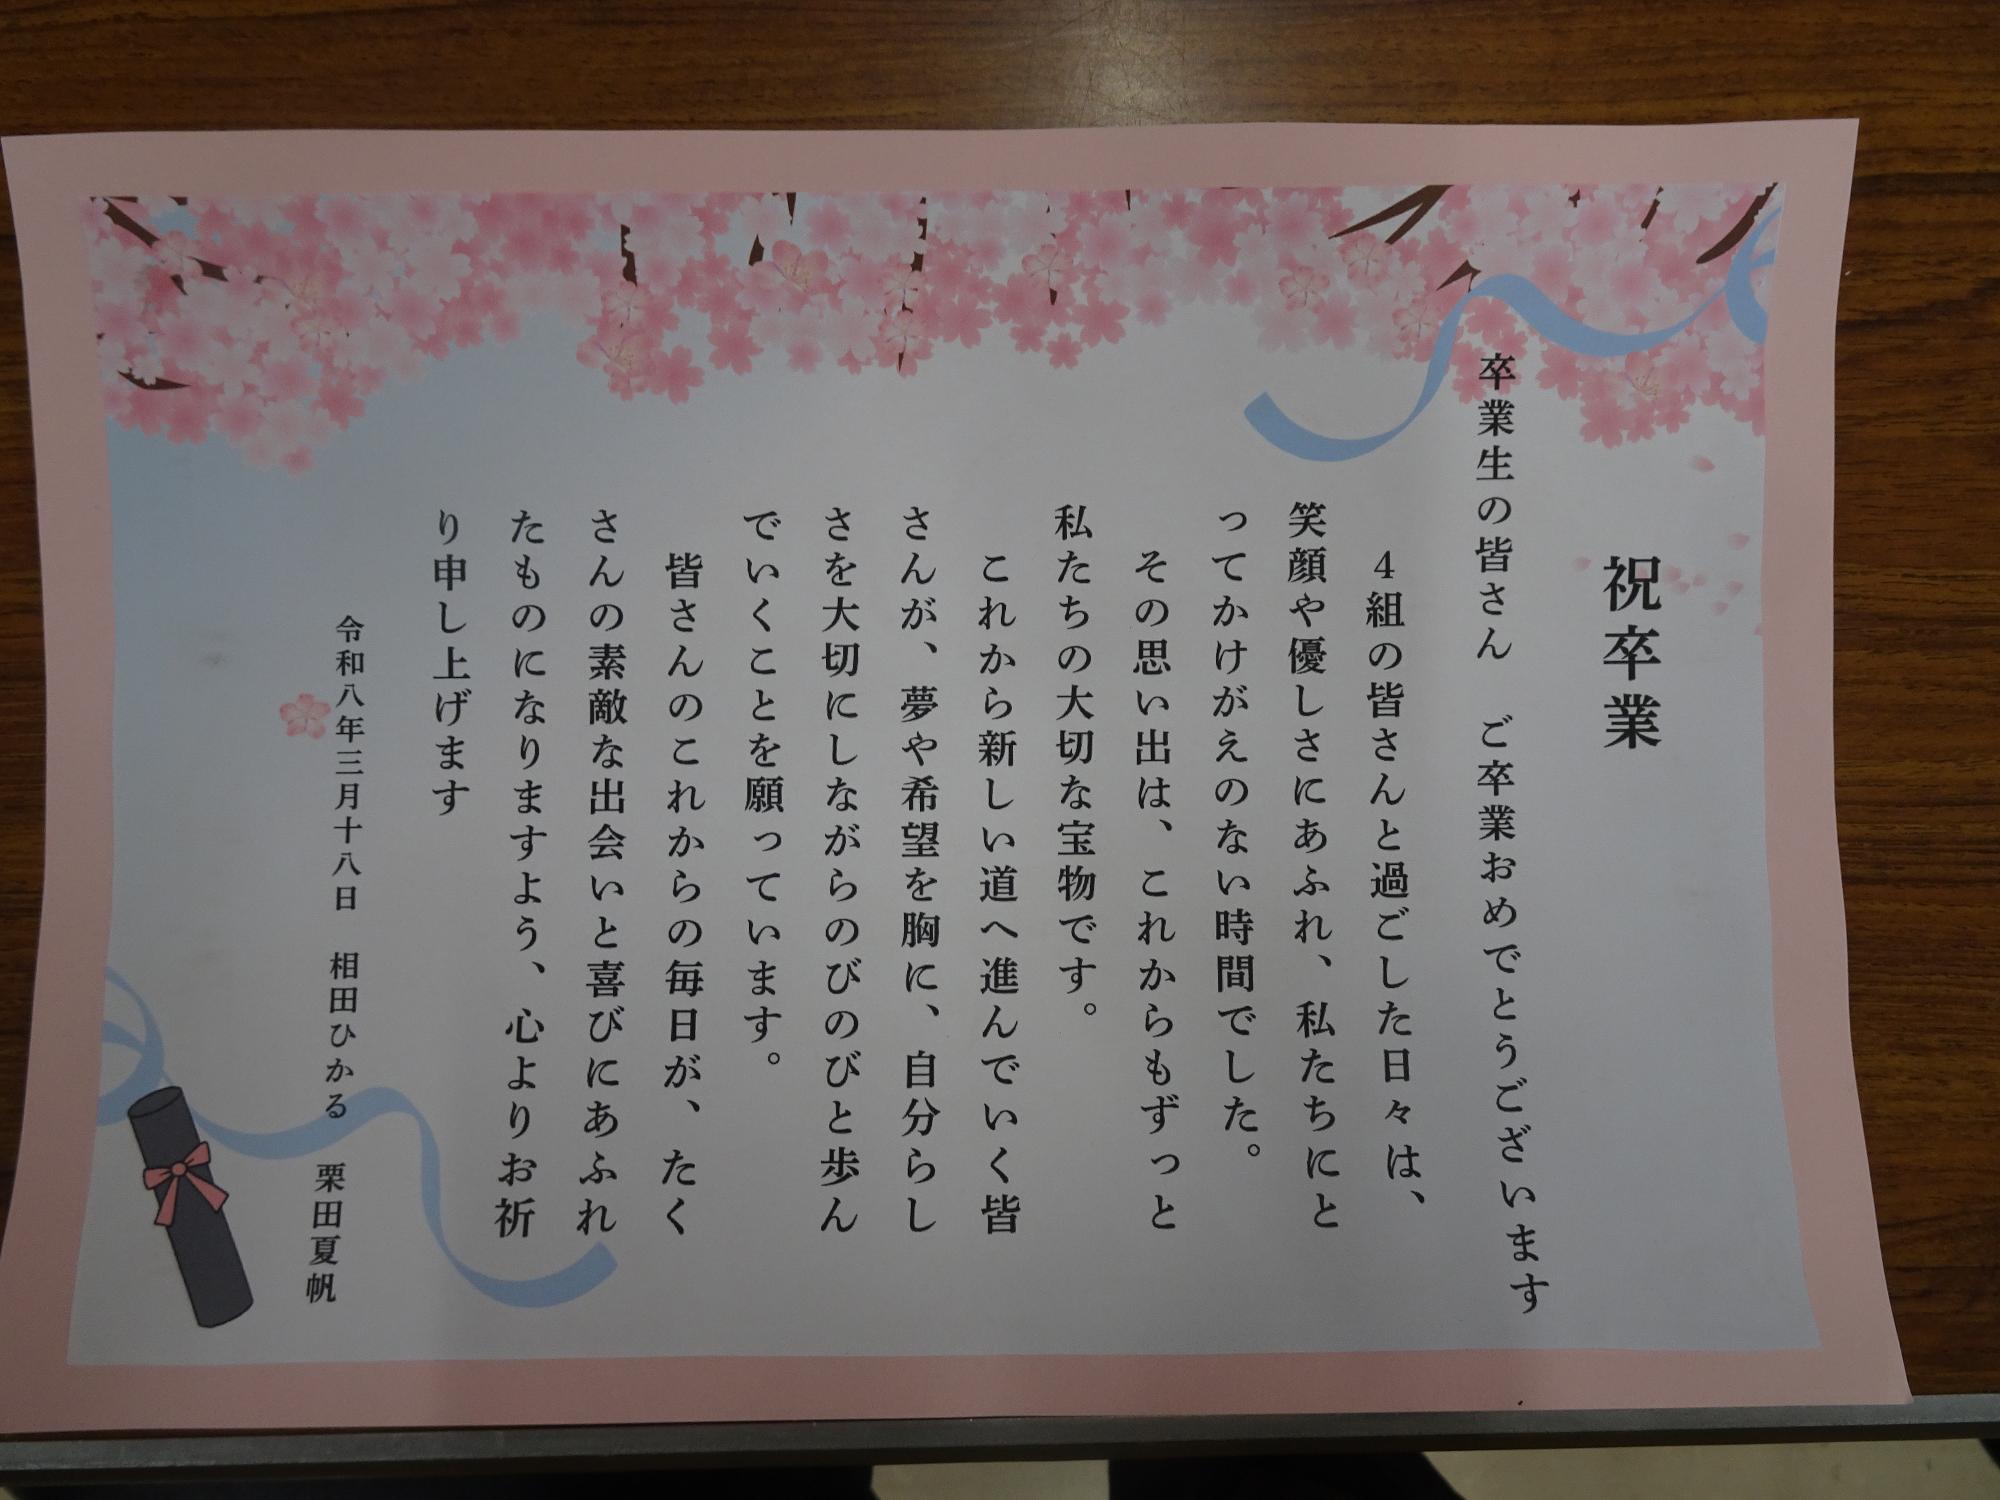 祝卒業
卒業生の皆さん　ご卒業おめでとうございます
４組の皆さんと過ごした日々は、
笑顔や優しさにあふれ、私たちにと
ってかけがえのない時間でした。
その思い出は、これからもずっと
私たちの大切な宝物です。
これから新しい道へ進んでいく皆
さんが、夢や希望を胸に、自分らし
さを大切にしながらのびのびと歩ん
でいくことを願っています。
皆さんのこれからの毎日が、たく
さんの素敵な出会いと喜びにあふれ
たものになりますよう、心よりお祈
り申し上げます
令和八年三月十八日　相田ひかる　栗田夏帆